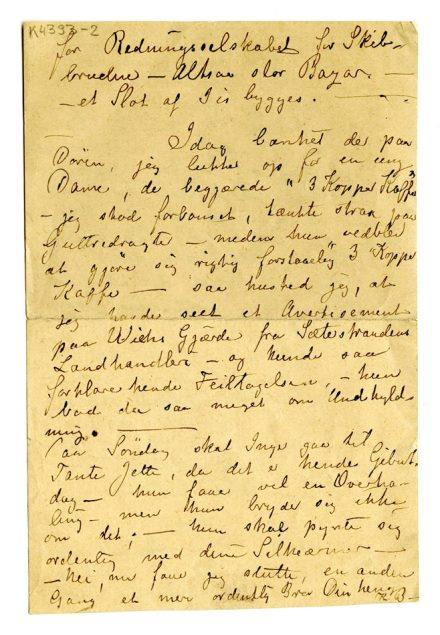 K4393-2
for Redningsselskabet for Skib-
brudne – Altsaa stor Bazar. –
– et Slot af Iis bygges.
– Idag banket de paa
Dören, jeg lukket op for en ung
Dame, de begjærede "3 Kopper Kaffe"
– jeg stod forbauset, tænkte strax paa
– medens hun vedblev
at gjøre sig rigtig "3 Kopper
Kaffe – saa husked jeg, at
jeg havde seet et Avertisement
paa Wichs Gjærde fra Sætrestrandens
Landhandleri – og kunde saa
forklare hende Feiltagelsen, – hun
bad da saa meget om Undskyld-
ning.
Paa Söndag skal Inge gaa til
Tante Jette, da det er hendes Geburts-
dag – hun faar vel en Overha-
ling – men hun bryde sig ikke
om det, – hun skal pynte sig
ordentlig med dine Silkeærmer –
– hei, nu faar jeg slutte, en anden
Gang et mer ordentlig Brev Din hen